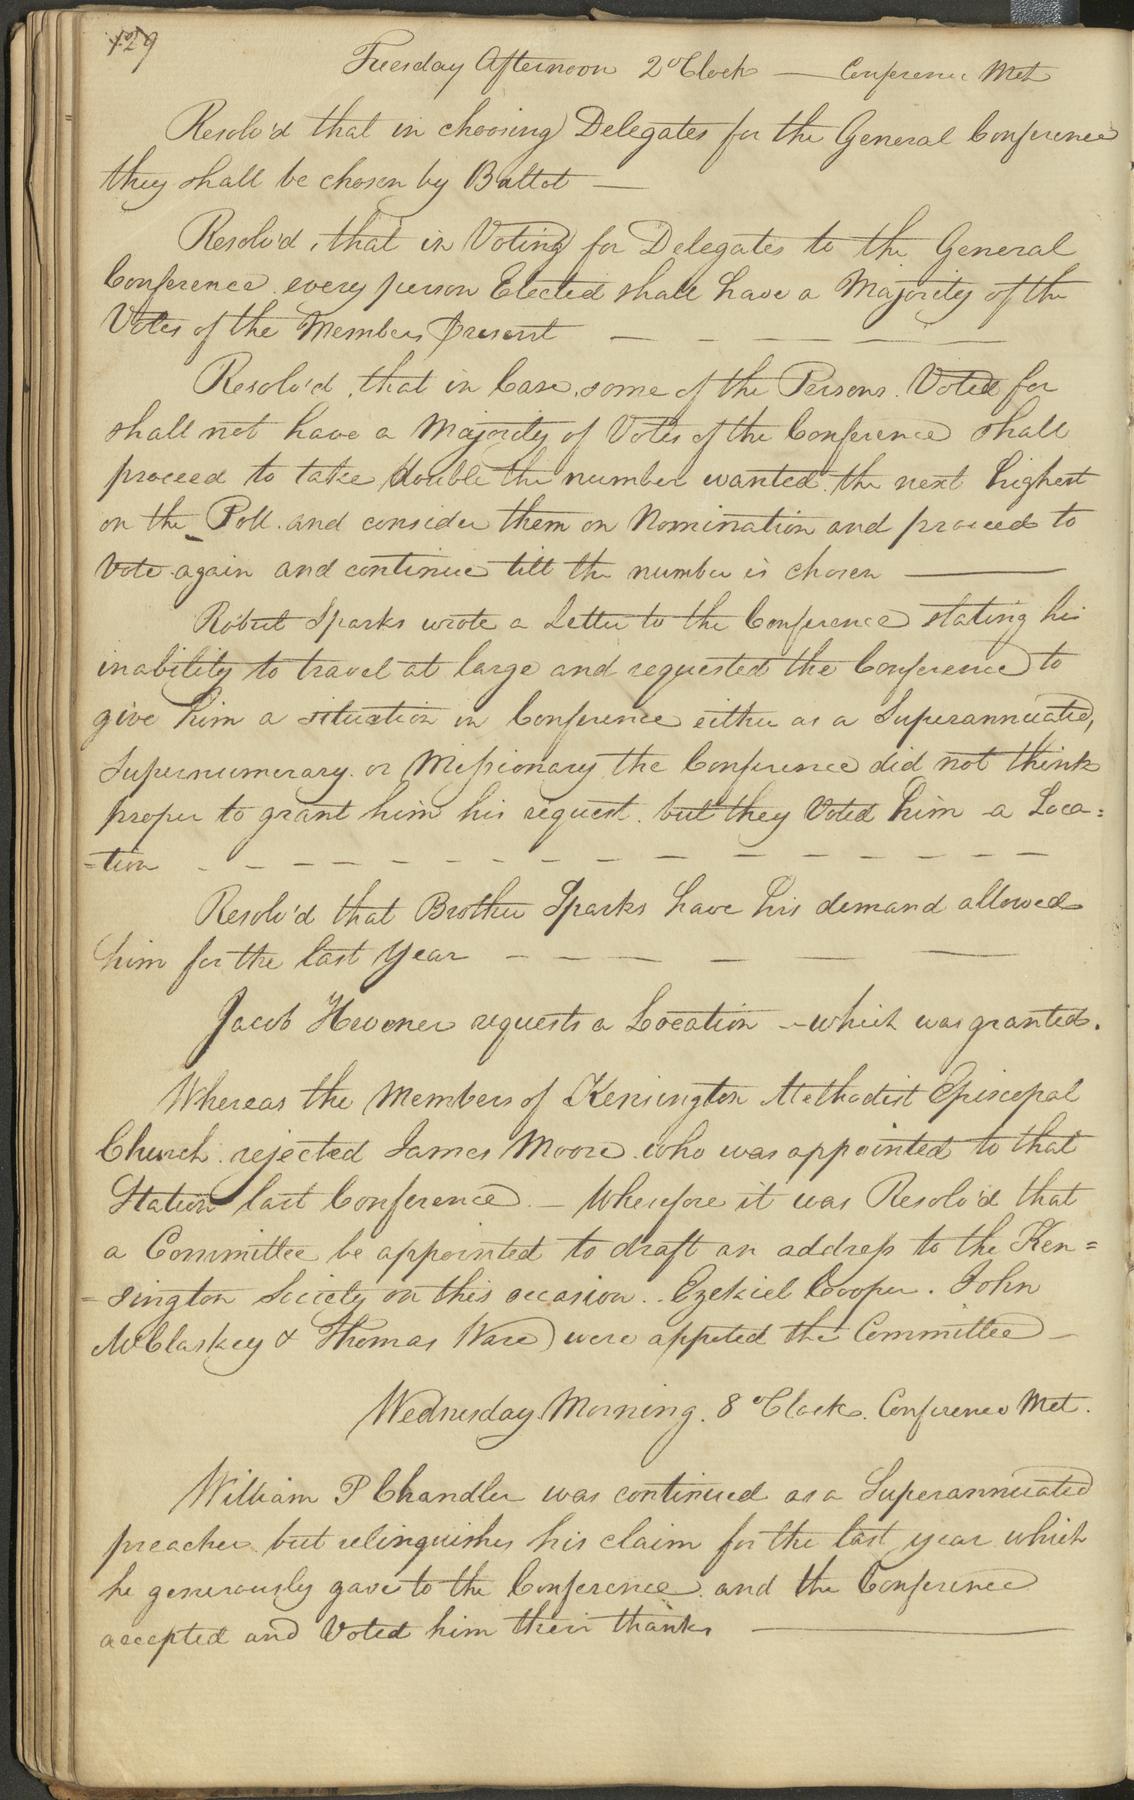 129
Tuesday Afternoon 2 oClock — Conference Met
Resolv'd that in choosing Delegates for the General Conference
they shall be chosen by Ballot —
Resolv'd, that in Voting for Delegates to the General
Conference every person Elected shall have a Majority of the
Votes of the Members Present — — — — — —
Resolv'd, that in Case, some of the Persons. Voted for
shall not have a Majority of Votes of the Conference shall
proceed to take double the number wanted the next highest
on the Poll. and consider them on Nomination and proceed to
Vote again and continue till the number is chosen —
Robert Sparks wrote a Letter to the Conference stating his
inability to travel at large and requested the Conference to
give him a situation in Conference either as a Superannuated,
Supernumerary. or Missionary the Conference did not think
proper to grant him his request. but they Voted him a Loca=
=tion - - - - - - - - - - - - - - - - -
Resolv'd that Brother Sparks have his demand allowed
him for the last Year - - - - — — —
Jacob Hevener requests a Location - which was granted.
Whereas the Members of Kensington Methodist Episcopal
Church. rejected James Moore. who was appointed to that
Station last Conference. — Wherefore it was Resolv'd that
a Committee be appointed to draft an address to the Ken=
=sington Society on this occasion. Ezekiel Cooper. John
McClaskey & Thomas Ware were appoted the Committee —
Wednesday Morning. 8 oClock. Conference Met.
William P Chandler was continued as a Superannuated
preacher but relinquishes his claim for the last year which
he generously gave to the Conference. and the Conference
accepted and Voted him their thanks —